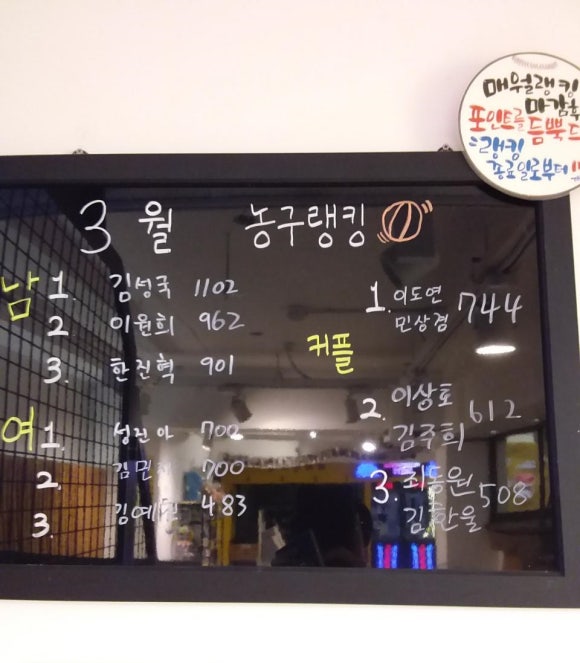 매월랭킹
마감후
포인트를 듬뿍
랭킹
종료일로부터
3월 농구랭킹
남
1. 김성국 1102
2 이원희 962
3. 한진혁 901
여
1. 성진아 700
2. 김민 700
3. 김예 483
커플
1. 이도연 민상경 744
2. 이상호 김주희 612
3. 최동원 김한울 508